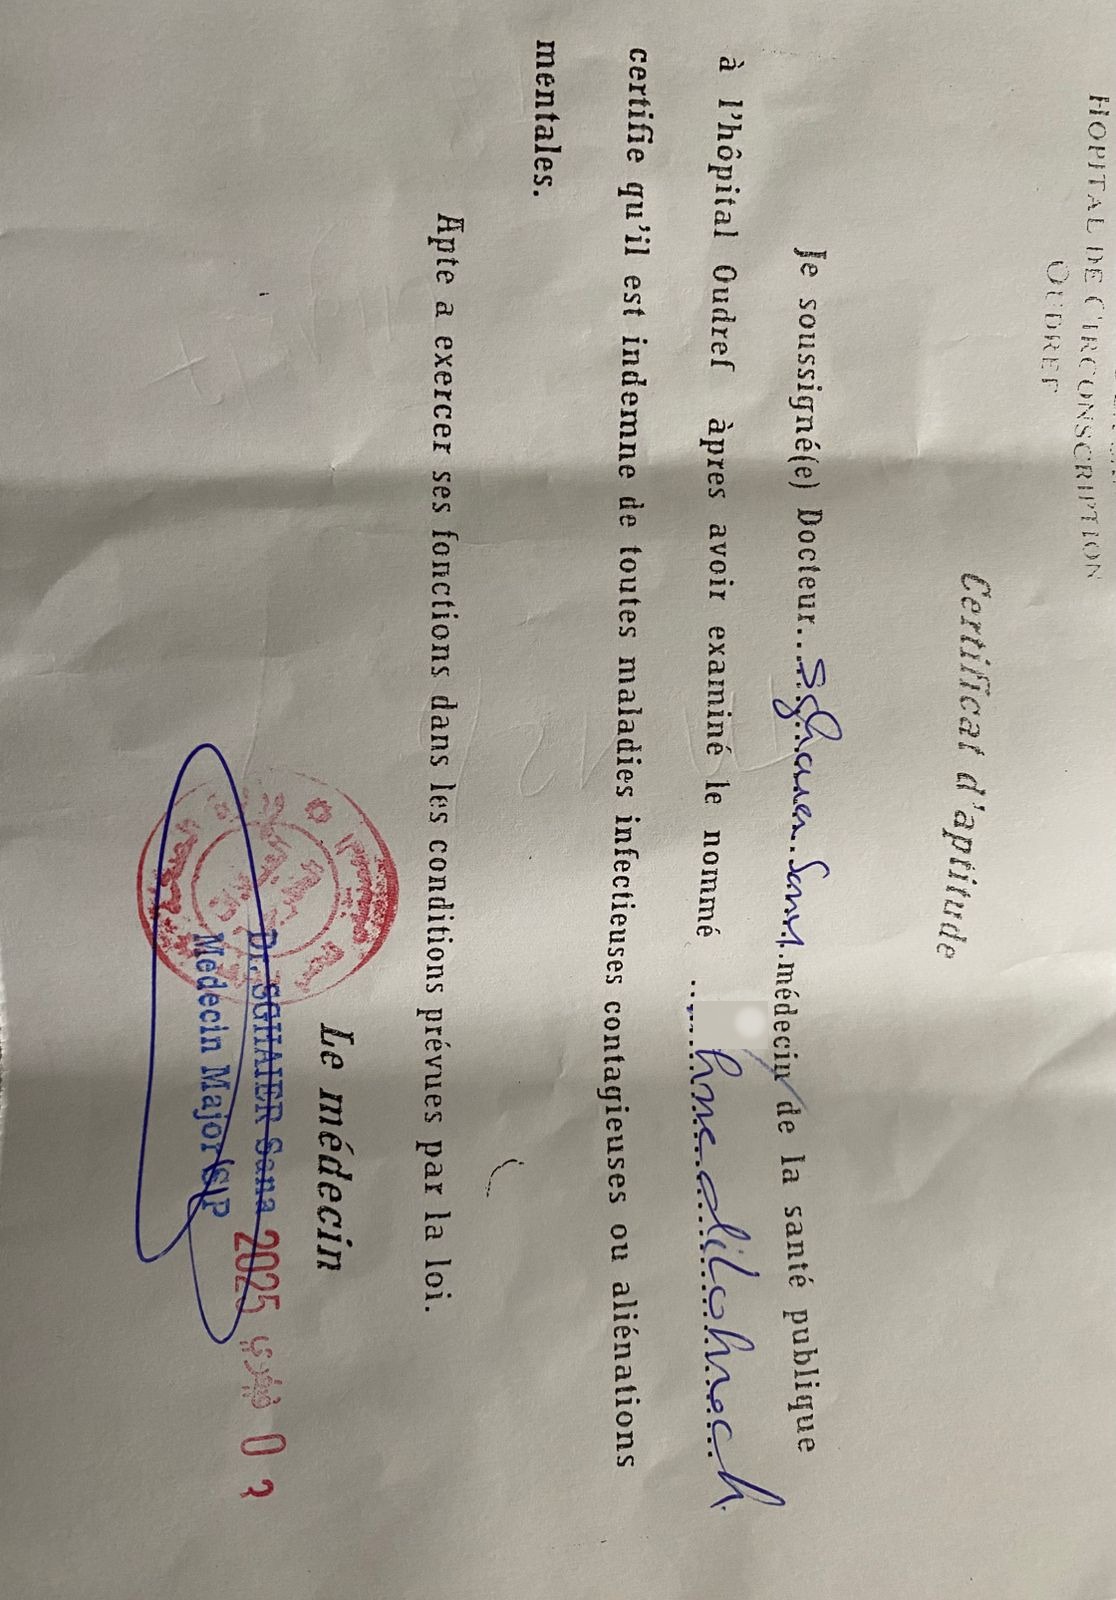 HOPITAL DE CIRCONSCRIPTION
OUDREF
Certificat d'aptitude
Je soussigné(e) Docteur...Sghaier Sana..médecin de la santé publique
à l'hôpital Oudref àpres avoir examiné le nommé
certifie qu'il est indemne de toutes maladies infectieuses contagieuses ou aliénations
mentales.
Apte a exercer ses fonctions dans les conditions prévues par la loi.
Le médecin
Dr. SGHAIER Sana
Médecin Major SP
2025 فيفري 0